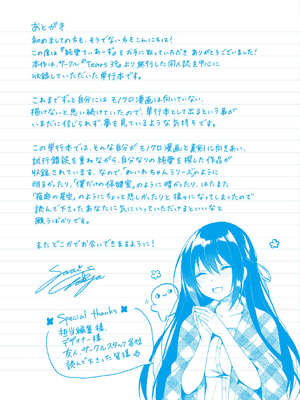 あとがき
初めましての方も、そうでない方もこんにちは！
この度は『純撃てぃあーず』をお手に取っていただき ありがとうございました！
本作は、サークル『Tears 39』より発行した同人誌を中心に
収録していただいた単行本です。
これまでずっと自分には モノクロ漫画は向いていない、
描けないと思い続けていたので、単行本として出るという事が
いまだに信じられず 夢を見ているような気持ちです。
この単行本では、そんな自分が モノクロ漫画と真剣に向きあい、
試行錯誤を重ねながら、自分なりの純撃を探した作品が
収録されています。なので、『めいわちゃんシリーズ』のように
明るかったり、『僕だけの保健室』のように暗かったり、はたまた
『のように ちょっと悲しかったりと 様々になってしまったので
読んで下さったあなたに気にいっていただけるといいなと
願うばかりです。
またどこかでお会いできますように！
Special thanks
担当編集様
デザイナー様
友人、サークルスタッフ各位
読んで下さった皆様